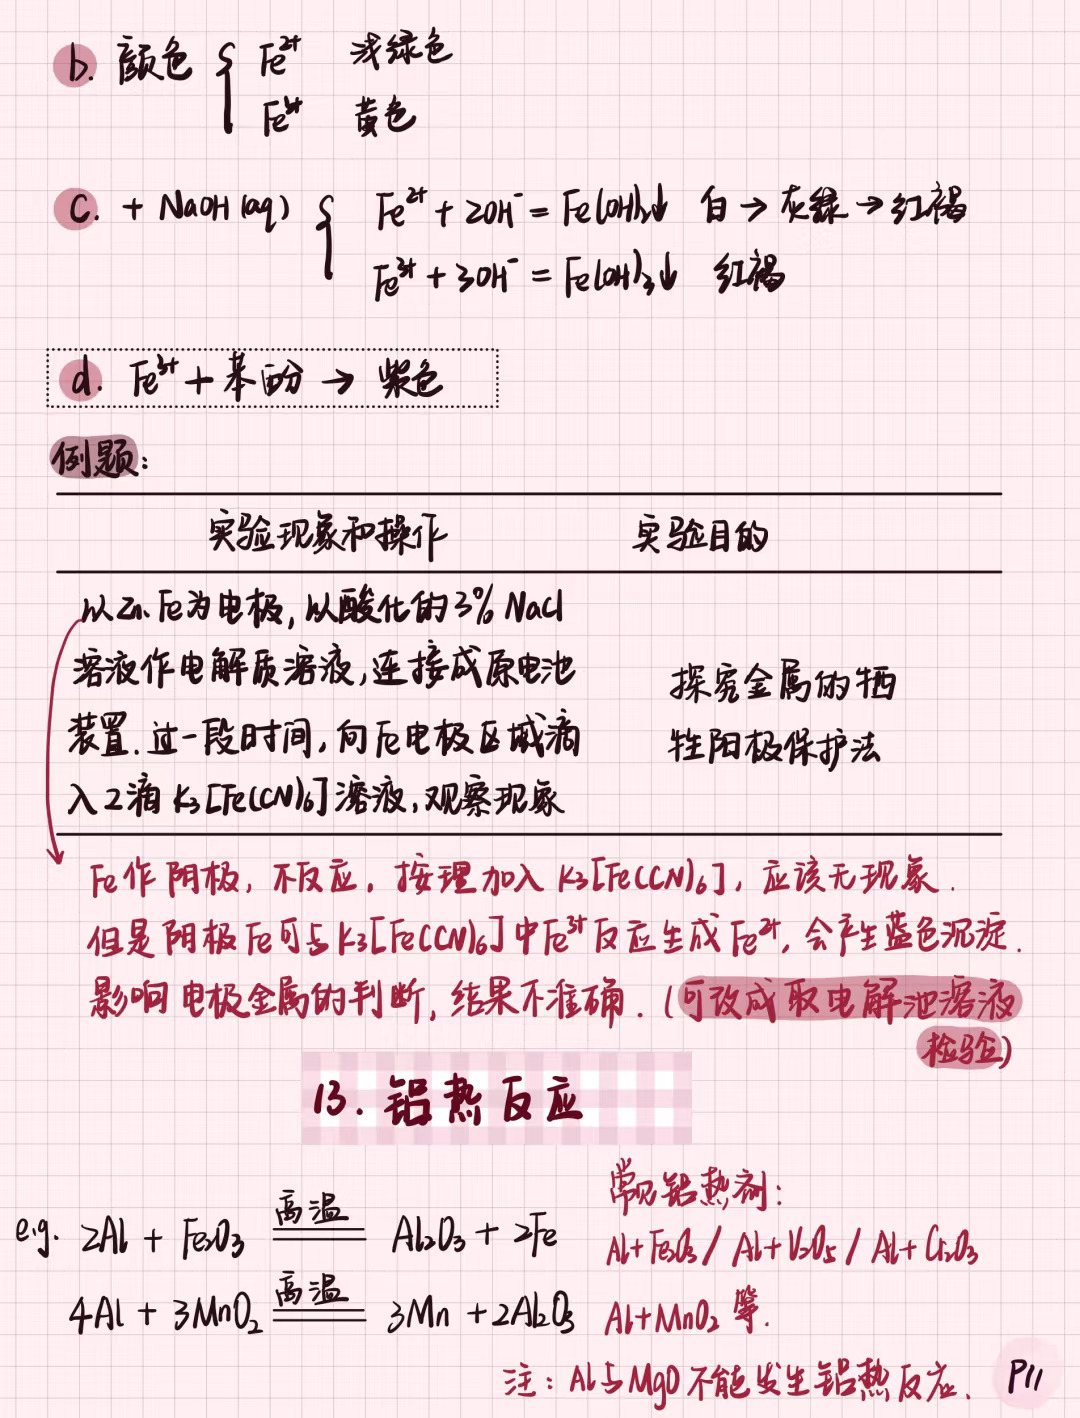 b. 颜色 { Fe²⁺ 浅绿色
Fe³⁺ 黄色
c. + NaOH(aq) { Fe²⁺ + 2OH⁻ = Fe(OH)₂↓ 白 → 灰绿 → 红褐
Fe³⁺ + 3OH⁻ = Fe(OH)₃↓ 红褐
d. Fe³⁺ + 苯酚 → 紫色
例题:
实验现象和操作 实验目的
以Zn、Fe为电极, 以酸化的3% NaCl
溶液作电解质溶液, 连接成原电池
装置. 过一段时间, 向Fe电极区域滴
入2滴 K₃[Fe(CN)₆]溶液, 观察现象
探究金属的牺
牲阳极保护法
Fe作阴极, 不反应. 按理加入 K₃[Fe(CN)₆], 应该无现象.
但是阴极Fe可与K₃[Fe(CN)₆]中Fe³⁺反应生成Fe²⁺, 会产生蓝色沉淀.
影响电极金属的判断, 结果不准确. (可改成取电解池溶液
检验)
13. 铝热反应
e.g. 2Al + Fe₂O₃ 高温 == Al₂O₃ + 2Fe
4Al + 3MnO₂ 高温 == 3Mn + 2Al₂O₃
常见铝热剂:
Al+Fe₂O₃ / Al+V₂O₅ / Al+Cr₂O₃
Al+MnO₂ 等.
注: Al与MgO不能发生铝热反应.
P11